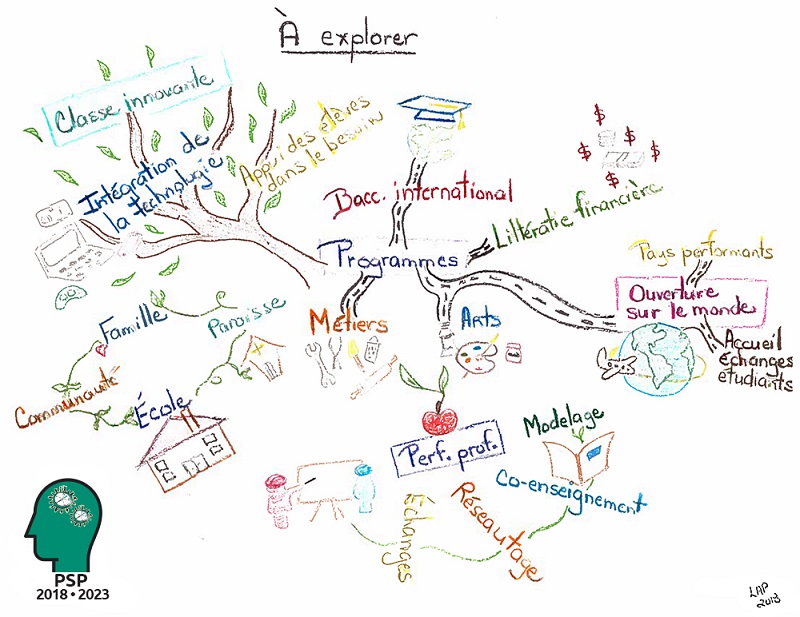 À explorer
Classe innovante
Intégration de
la technologie
Appui des élèves
dans le besoin
Bacc. international
$
$
$
$
$
Littératie financière
Programmes
Pays performants
Ouverture
sur le monde
Accueil
échanges
étudiants
Métiers
Arts
Famille
Paroisse
Communauté
École
Perf. prof.
Modelage
Co-enseignement
Échanges
Réseautage
PSP
2018 • 2023
LAP
2018